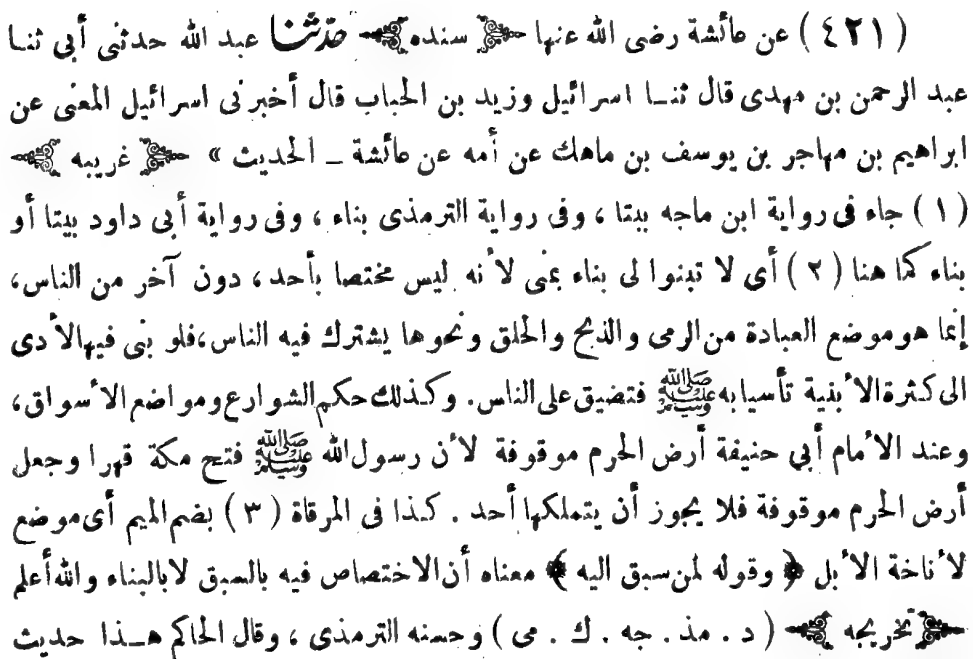 (٤٢١) عن عائشة رضى الله عنها ﴿ سنده ﴾ حدثنا عبد الله حدثنى أبى ثنا
عبد الرحمن بن مهدى قال ثنا اسرائيل وزيد بن الحباب قال أخبرنى اسرائيل المعنى عن
ابراهيم بن مهاجر بن يوسف بن ماهك عن أمه عن عائشة _ الحديث » ﴿ غريبه ﴾
(١) جاء فى رواية ابن ماجه بيتا ، وفى رواية الترمذى بناء ، وفى رواية أبى داود بيتا أو
بناء كما هنا (٢) أى لا تبنوا لى بناء بمنى لأنه ليس مختصا بأحد ، دون آخر من الناس،
إنما هو موضع العبادة من الرمى والذبح والحلق ونحوها يشترك فيه الناس،فلو بنى فيها لأدى
الى كثرة الأبنية تأسيا به ﷺ فتضيق على الناس. وكذلك حكم الشوارع ومواضع الأسواق،
وعند الأمام أبي حنيفة أرض الحرم موقوفة لأن رسول الله ﷺ فتح مكة قهرا وجعل
أرض الحرم موقوفة فلا يجوز أن يتملكها أحد . كذا فى المرقاة (٣) بضم الميم أى موضع
لأناخة الأبل ﴿ وقوله لمن سبق اليه ﴾ معناه أن الاختصاص فيه بالسبق لا بالبناء والله أعلم
﴿ تخريجه ﴾ ( د . مذ . جه . ك . مى ) وحسنه الترمذى ، وقال الحاكم هــذا حديث